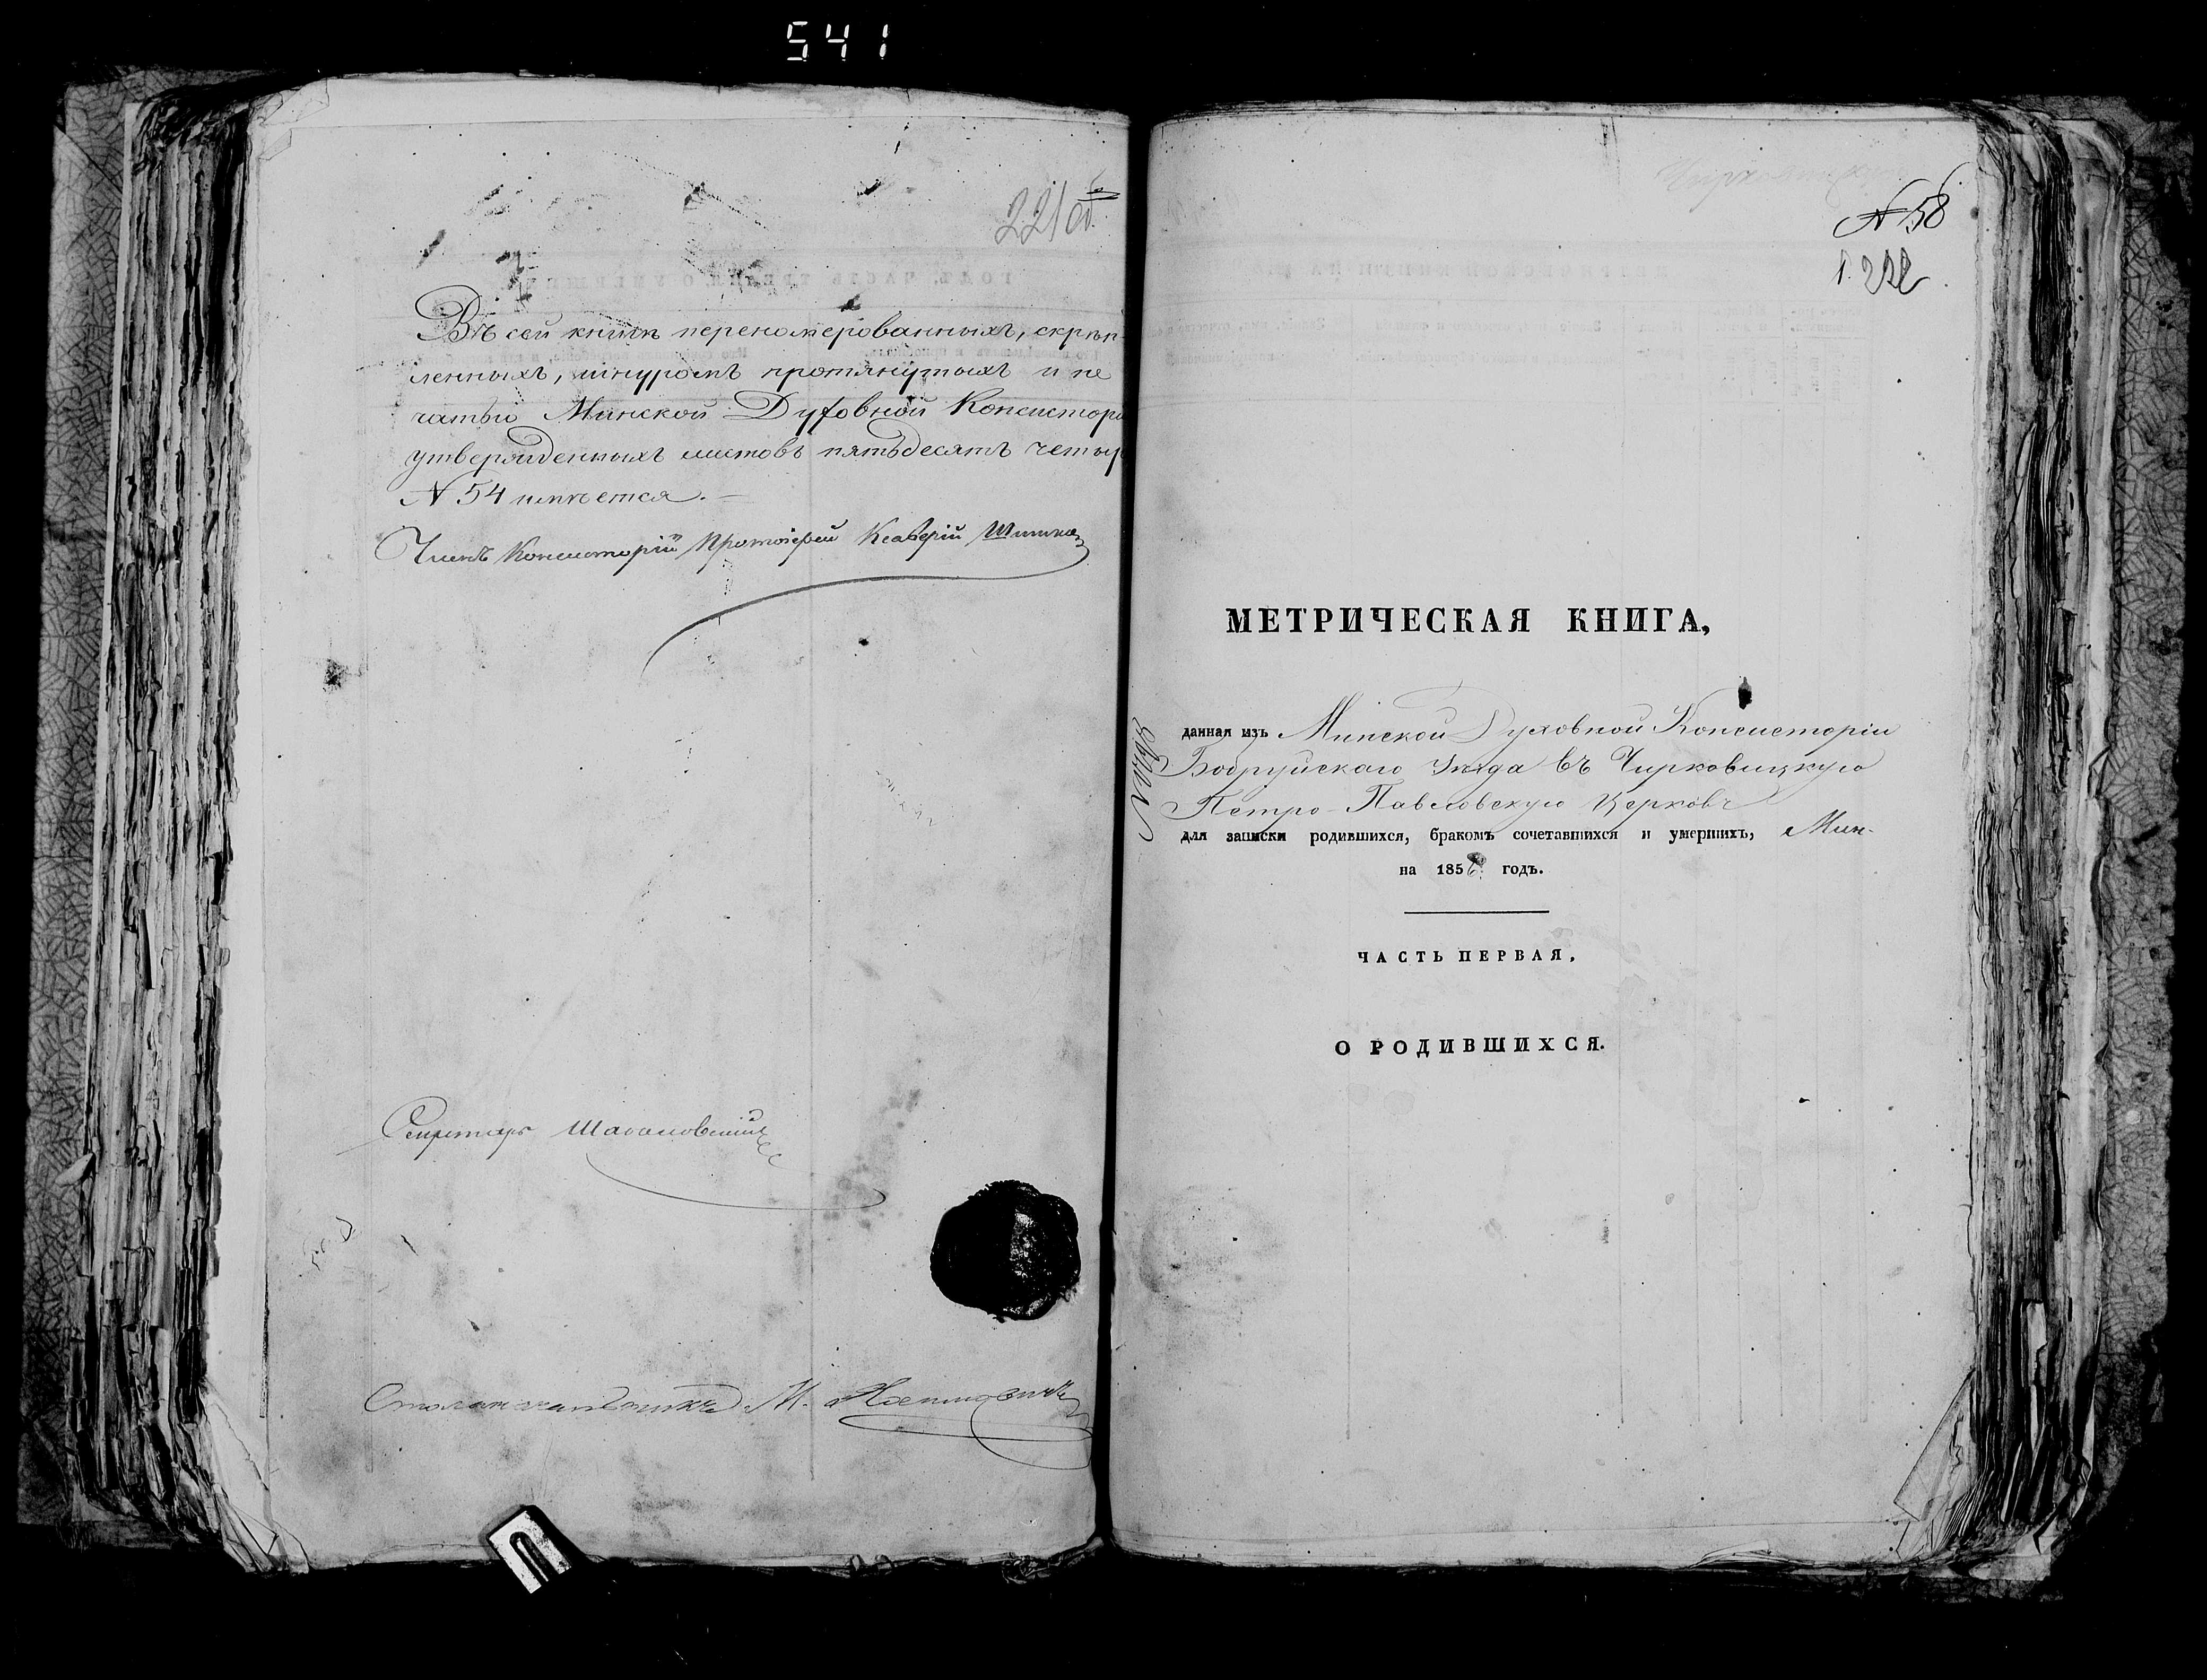 541
221 об.
Въ сей книгѣ перенумерованныхъ, скрѣп-
ленныхъ, шнуромъ протянутыхъ и пе
чатью Минской Духовной Консисторі
утвержденныхъ листовъ пятьдесятъ четыр
N 54 имѣется. —
Членъ Консисторіи Протоіерей Ксаверій
Секретарь
Столоначальникъ М.
N 58
222
МЕТРИЧЕСКАЯ КНИГА,
данная изъ Минской Духовной Консисторіи
Бобруйскаго уѣзда въ Чирковицкую
Петро-Павловскую Церковь
для записки родившихся, бракомъ сочетавшихся и умершихъ,
на 185 годъ.
ЧАСТЬ ПЕРВАЯ.
О РОДИВШИХСЯ.